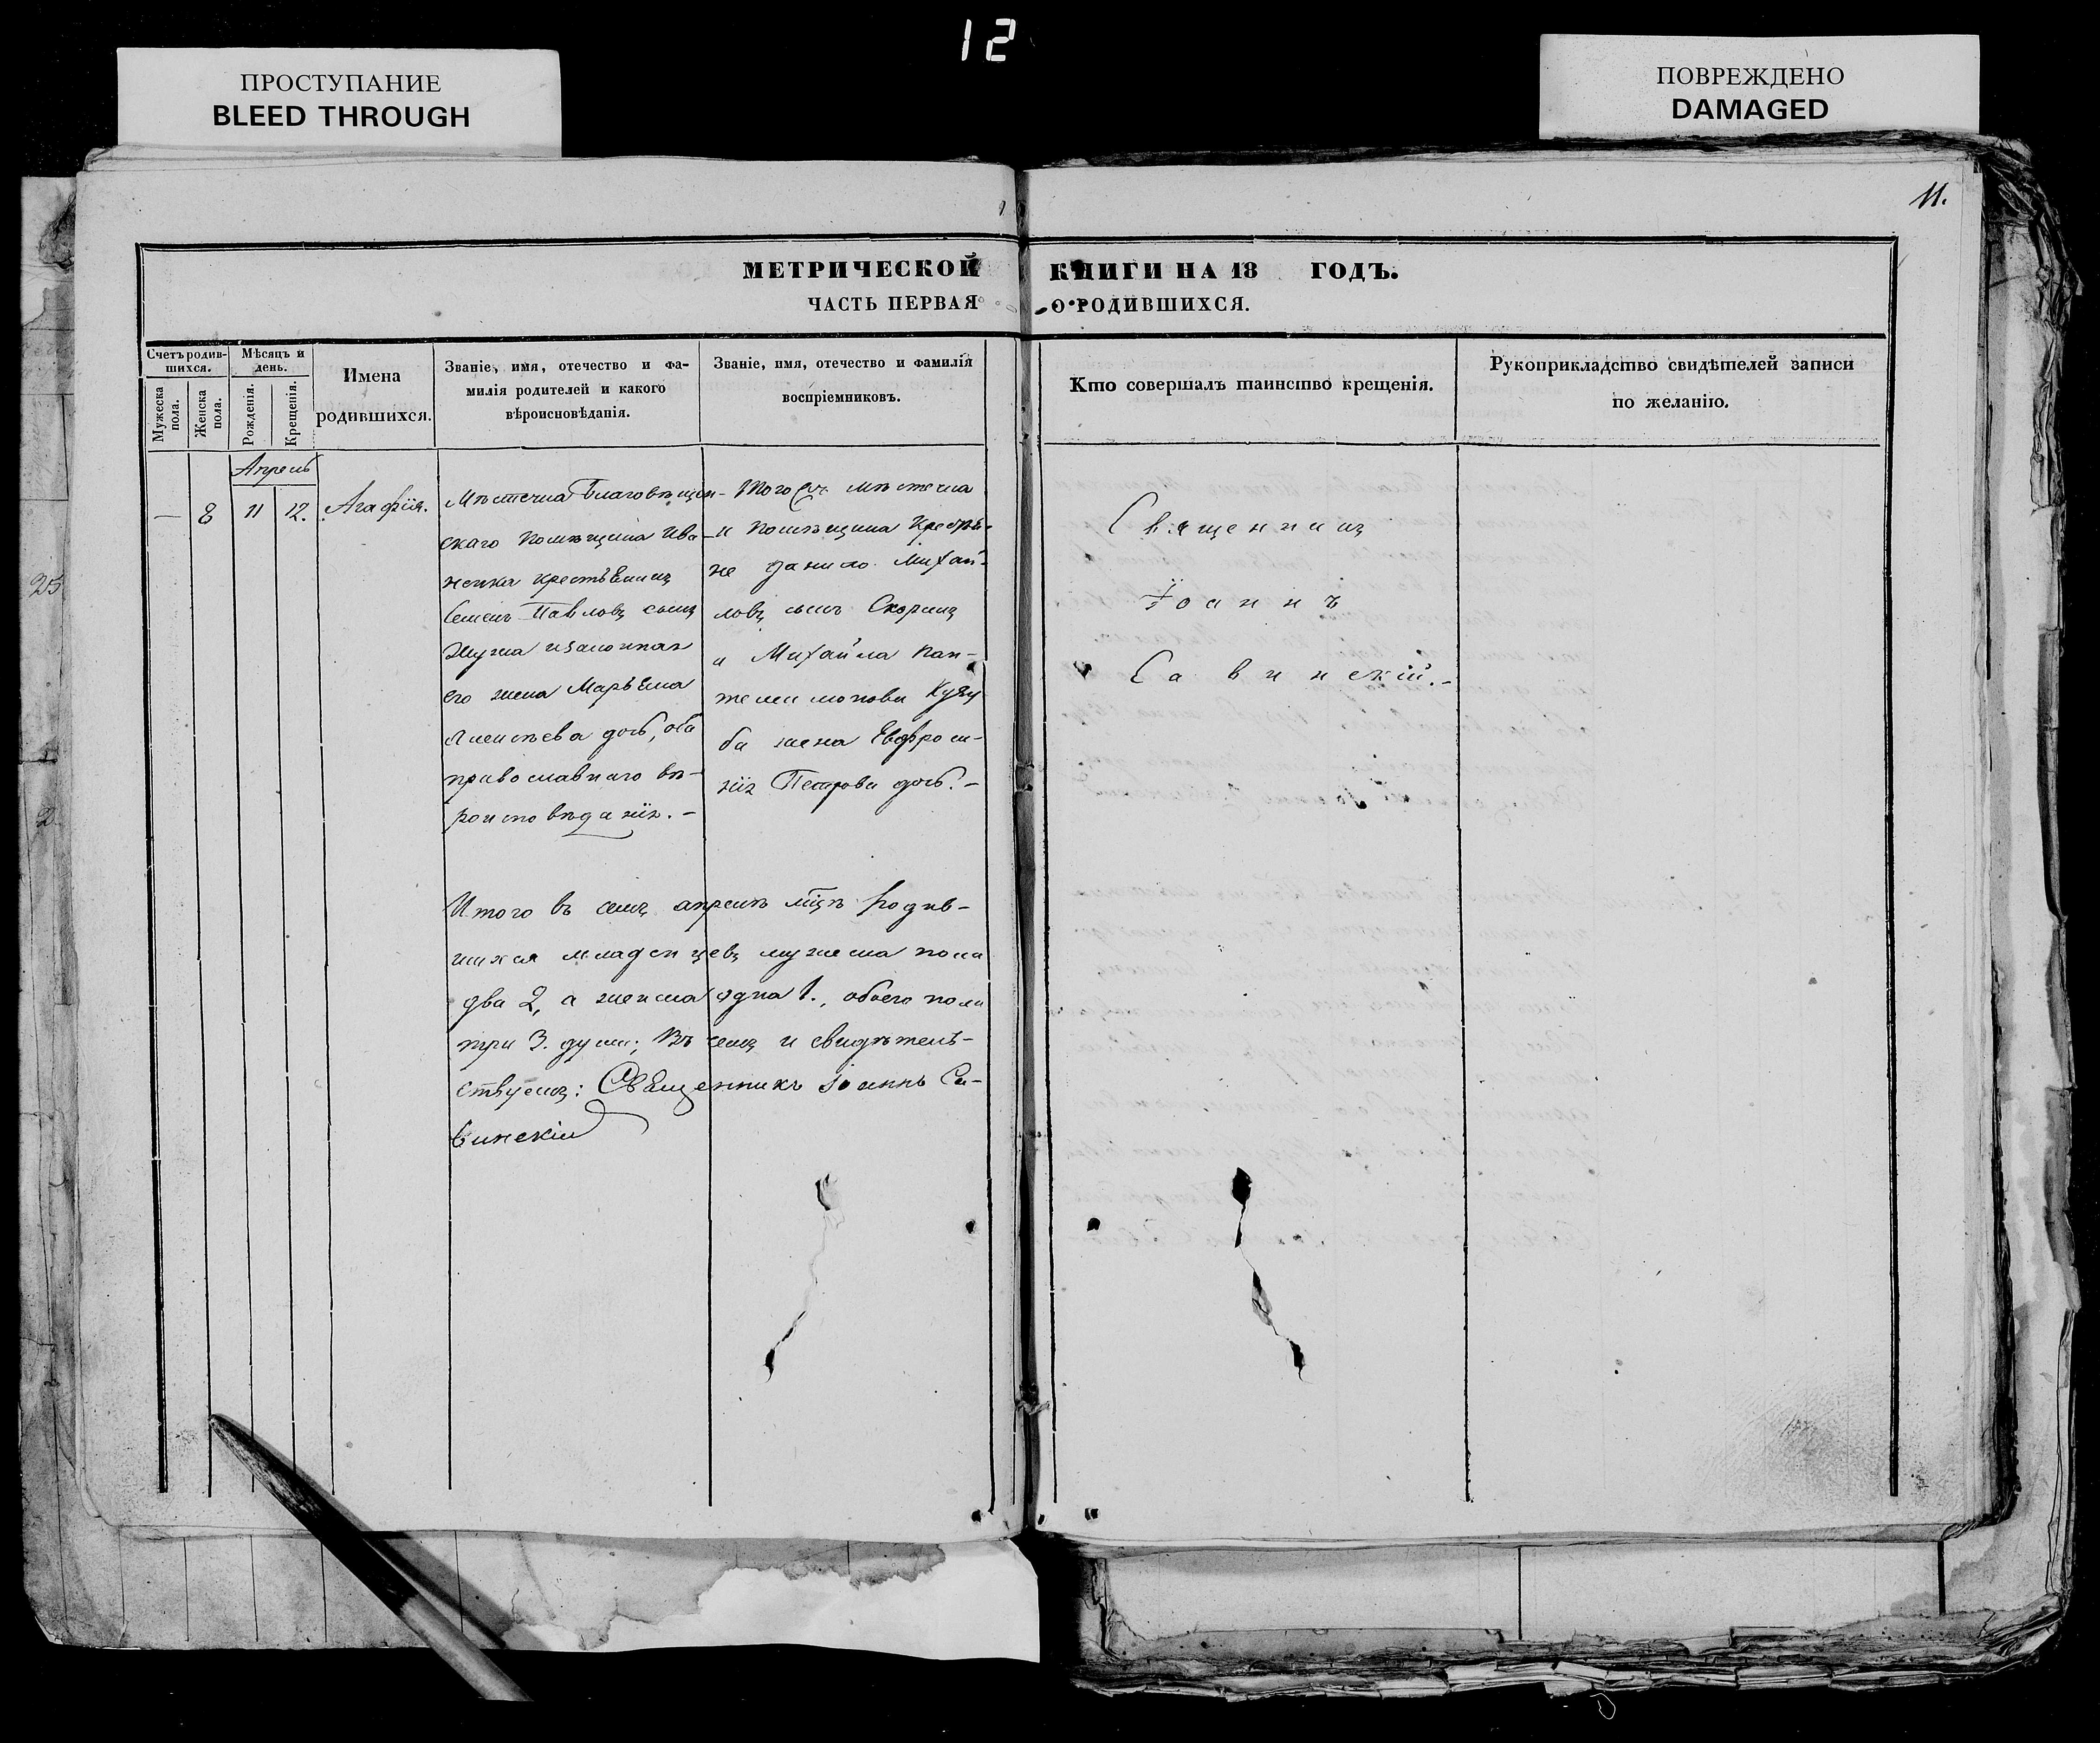 12
ПРОСТУПАНИЕ
BLEED THROUGH
ПОВРЕЖДЕНО
DAMAGED
11.
МЕТРИЧЕСКОЙ КНИГИ НА 18 ГОДЪ.
ЧАСТЬ ПЕРВАЯ О РОДИВШИХСЯ.
Счетъ родив-
шихся.
Мужеска
пола.
Женска
пола.
Мѣсяцъ и
день.
Рожденія.
Крещенія.
Имена
родившихся.
Званіе, имя, отечество и фа-
милія родителей и какого
вѣроисновѣданія.
Званіе, имя, отечество и фамилія
воспріемниковъ.
Кто совершалъ таинство крещенія.
Рукоприкладство свидѣтелей записи
по желанію.
Апрель
— 8 11 12. Агафія.
Мѣстечка Благовѣщен-
скаго помѣщика Ива-
ненка крестьянинъ
Семенъ Павловъ сынъ
законная
его жена Марьяна
дочь, оба
православнаго вѣ-
роисповѣданія. –
Того мѣстечка
и помѣщика Крестья-
не Данило Михай-
ловъ сынъ
и Михайла Пан-
телимонова Кузу
ба жена Евфроси-
нія Петрова дочь. –
Священникъ
Іоаннъ
Савинскій. –
Итого въ семъ апрелѣ мцѣ родив-
шихся младенцевъ мужеска пола
два 2, а женска одна 1., обоего пола
три 3. души; Въ семъ и свидѣтель-
ствуемъ: Священникъ Іоаннъ Са-
винскій
25
2